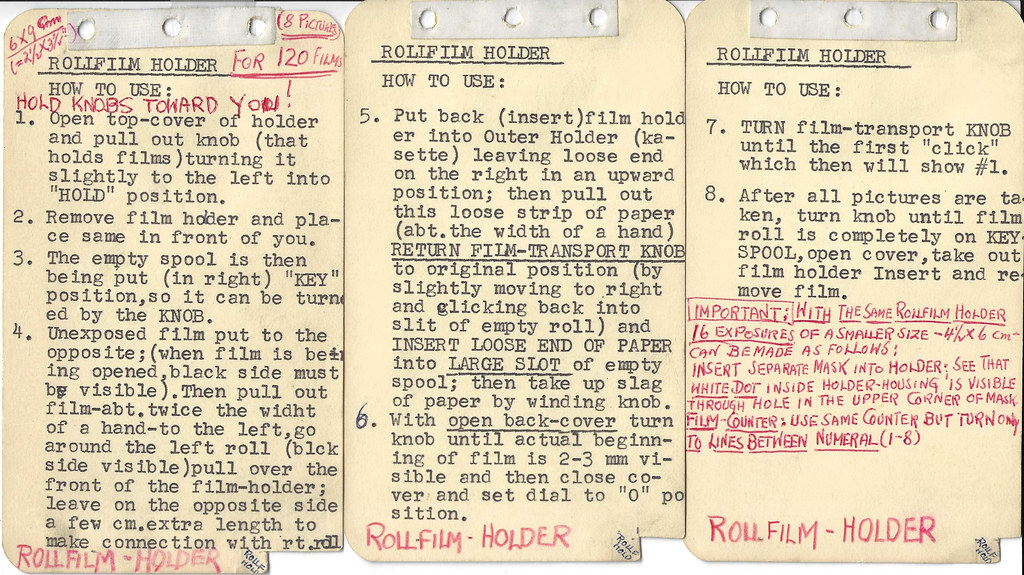 6X9 Cm
(=2¼X3¼")
(8 PICTURES)
ROLLFILM HOLDER FOR 120 FILMS
HOW TO USE: !
HOLD KNOBS TOWARD YOU
1. Open top-cover of holder
and pull out knob (that
holds films)turning it
slightly to the left into
"HOLD" position.
2. Remove film holder and pla-
ce same in front of you.
3. The empty spool is then
being put (in right) "KEY"
position,so it can be turn
ed by the KNOB.
4. Unexposed film put to the
opposite;(when film is bei
ing opened,black side must
be visible).Then pull out
film-abt.twice the widht
of a hand-to the left,go
around the left roll (blck
side visible)pull over the
front of the film-holder;
leave on the opposite side
a few cm.extra length to
make connection with rt.roll
ROLLFILM - HOLDER
ROLLF
HOLD
ROLLFILM HOLDER
HOW TO USE:
5. Put back (insert)film hold
er into Outer Holder (ka-
sette) leaving loose end
on the right in an upward
position; then pull out
this loose strip of paper
(abt.the width of a hand)
RETURN FILM-TRANSPORT KNOB
to original position (by
slightly moving to right
and clicking back into
slit of empty roll) and
INSERT LOOSE END OF PAPER
into LARGE SLOT of empty
spool; then take up slag
of paper by winding knob.
6. With open back-cover turn
knob until actual beginn-
ing of film is 2-3 mm vi-
sible and then close co-
ver and set dial to "0" po
sition.
ROLLFILM - HOLDER
ROLLF
HOLD
ROLLFILM HOLDER
HOW TO USE:
7. TURN film-transport KNOB
until the first "click"
which then will show #1.
8. After all pictures are ta-
ken, turn knob until film
roll is completely on KEY
SPOOL,open cover,take out
film holder Insert and re
move film.
IMPORTANT: WITH THE SAME ROLLFILM HOLDER
16 EXPOSURES OF A SMALLER SIZE -4½X6 cm-
CAN BE MADE AS FOLLOWS:
INSERT SEPARATE MASK INTO HOLDER; SEE THAT
WHITE DOT INSIDE HOLDER-HOUSING IS VISIBLE
THROUGH HOLE IN THE UPPER CORNER OF MASK
FILM-COUNTER: USE SAME COUNTER BUT TURN ONLY
TO LINES BETWEEN NUMERAL (1-8)
ROLLFILM - HOLDER
ROLLF
HOLD